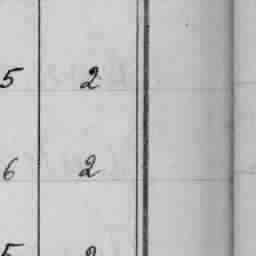 5 2
6 2
5 2